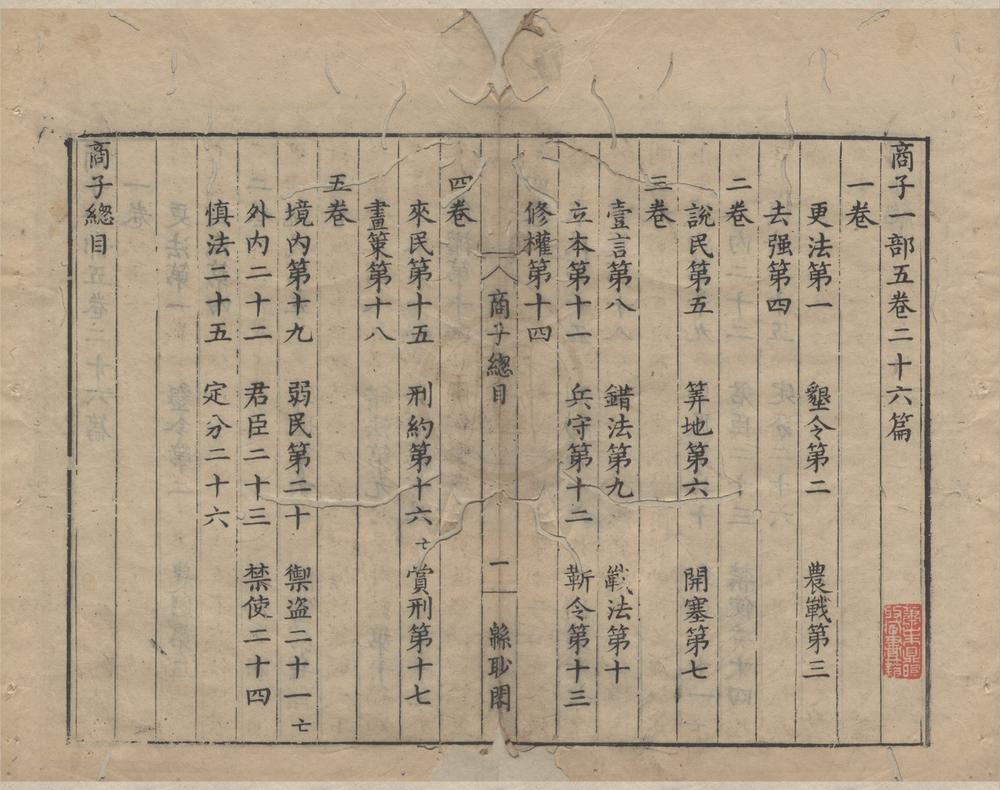 商子一部五卷二十六篇
一卷
更法第一 墾令第二 農戰第三
去强第四
二卷
說民第五 筭地第六 開塞第七
三卷
壹言第八 錯法第九 戰法第十
立本第十一 兵守第十二 靳令第十三
修權第十四
商子總目 一 緜眇閣
四卷
來民第十五 刑約第十六亡 賞刑第十七
畫策第十八
五卷
境內第十九 弱民第二十 禦盜二十一亡
外內二十二 君臣二十三 禁使二十四
慎法二十五 定分二十六
商子總目